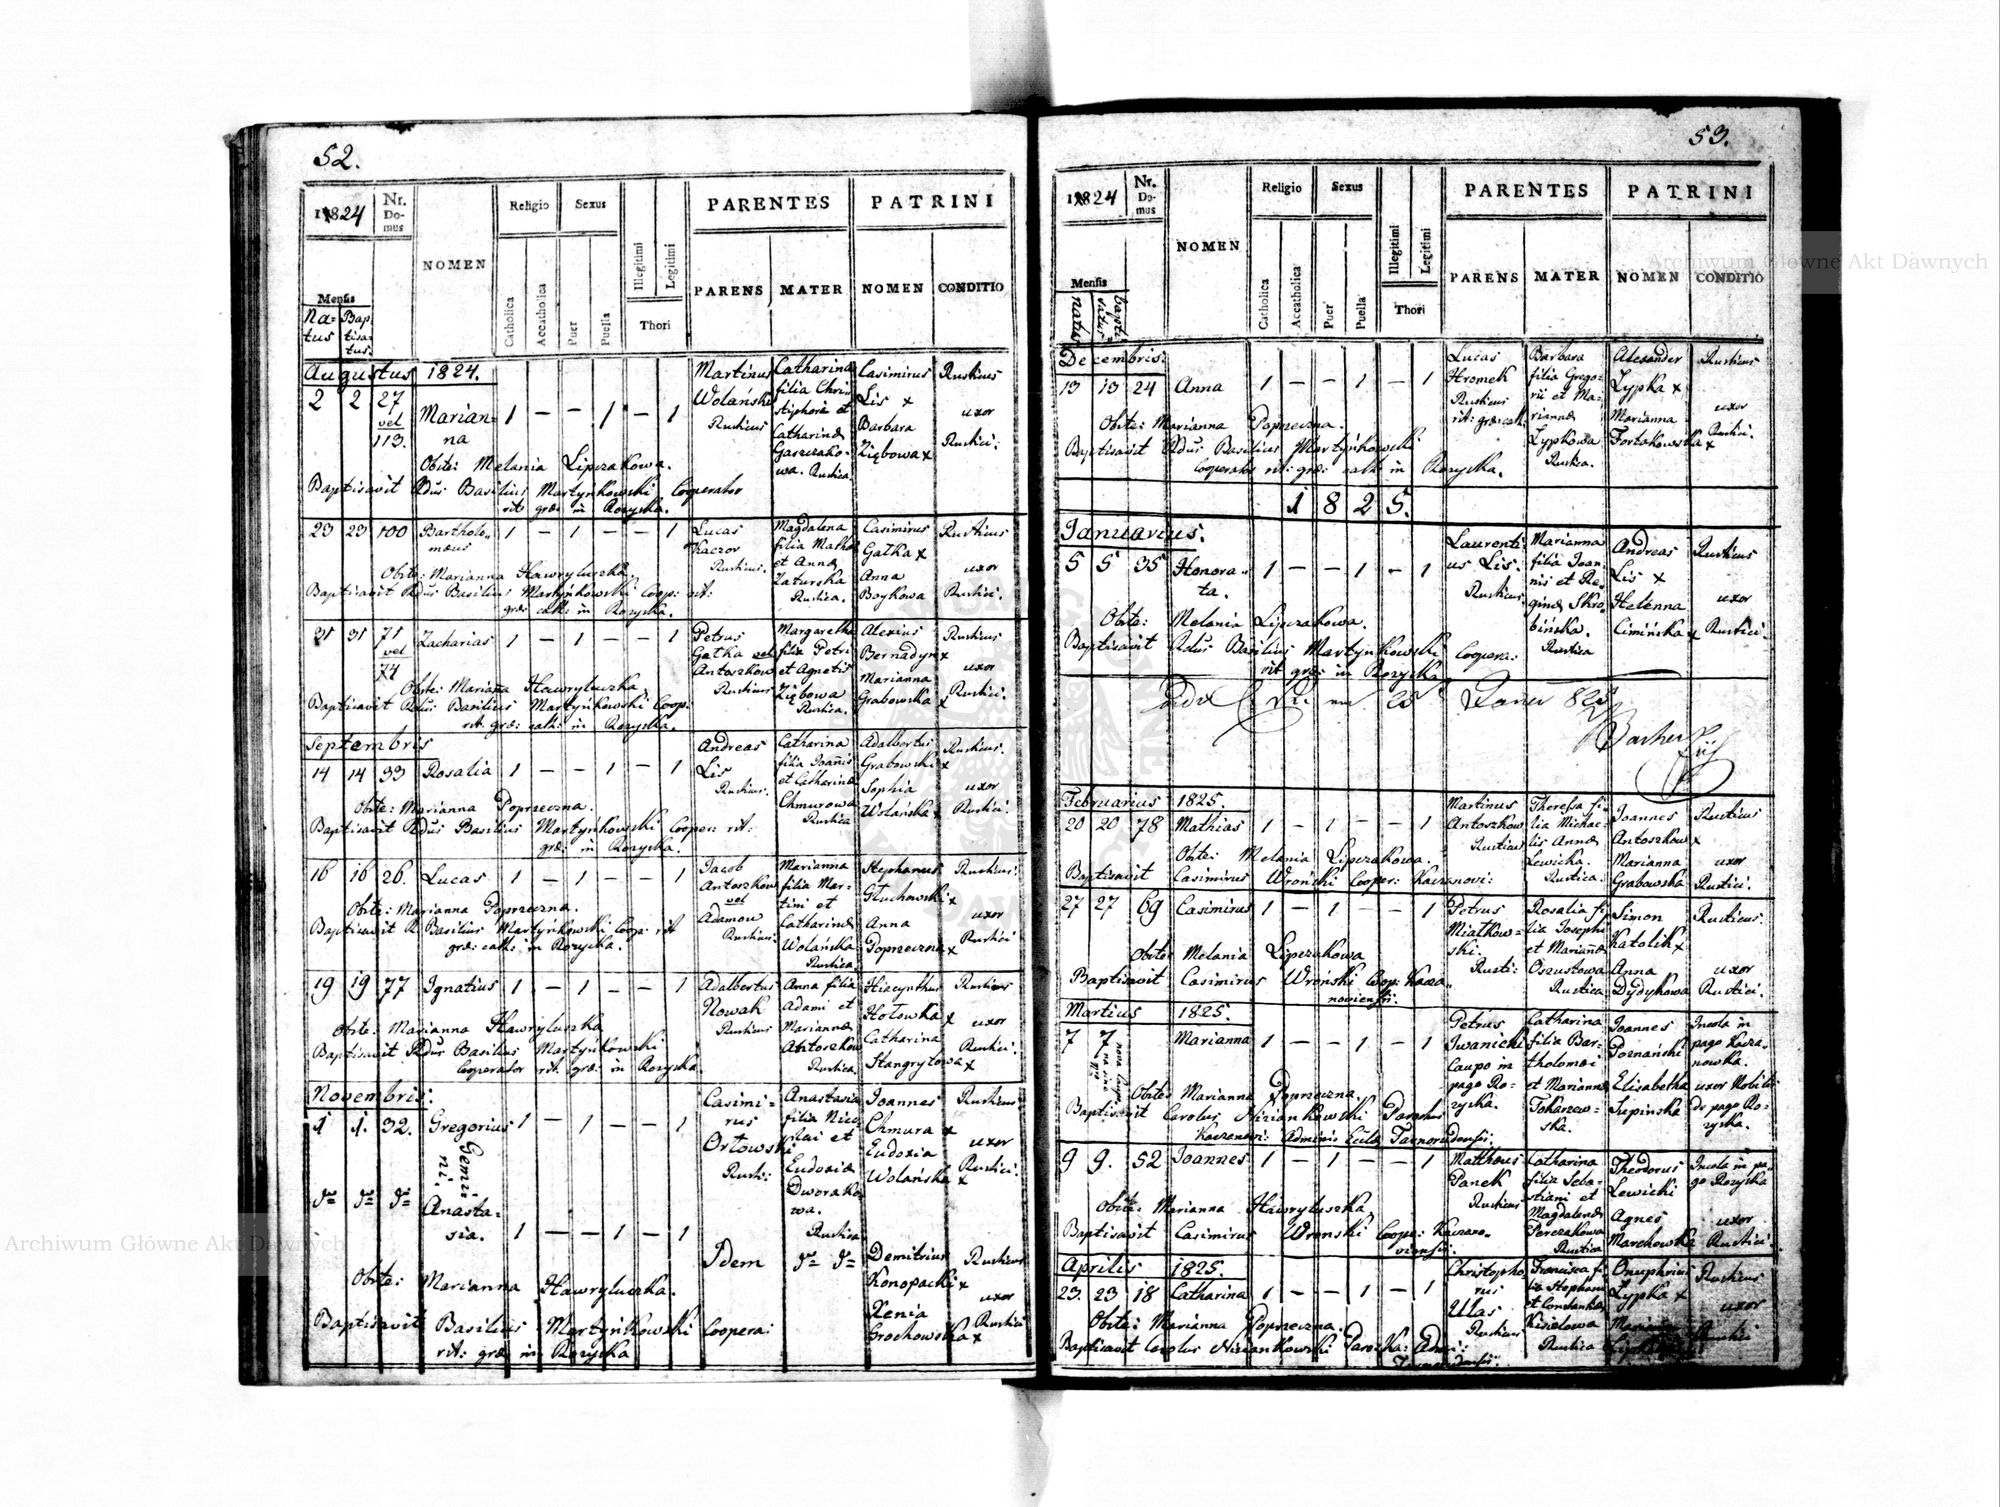 52.
1824
Nr. Domus
NOMEN
Religio
Sexus
PARENTES
PATRINI
Mensis
Natus
Baptisatus.
Catholica
Accatholica
Puer
Puella
Illegitimi
Legitimi
Thori
PARENS
MATER
NOMEN
CONDITIO
Augustus 1824.
2 2 27 vel 113. Marianna 1 — — 1 — 1
Martinus Wolański Rusticus
Catharina filia Christophori et Catharinæ Gaszczakowa. Rustica.
Casimirus Lis x Rusticus
Barbara Ziębowa x uxor Rustici:
Obste: Melania Lipczakowa.
Baptisavit Rdus Basilius Martyńkowski Cooperator
rit græ: in Rozycka.
23 23 100 Bartholomæus 1 — 1 — — 1
Lucas Kaczor Rusticus.
Magdalena filia Mathæ et Annæ Zaturska Rustica.
Casimirus Gałka x Rusticus
Anna Boykowa uxor Rustici:
Obste: Marianna Hawryluszka.
Baptisavit Rdus Basilius Martyńkowski Coop: rit:
græ: cath: in Rozycka.
31 31 71 vel 74 Zacharias 1 — 1 — — 1
Petrus Gałka vel Antoszkow Rusticus
Margaretha filia Petri et Agnetis Ziębowa Rustica.
Alexius Bernadyn x Rusticus
Marianna Grabowska x uxor Rustici.
Obste: Marianna Hawryluszka
Baptisavit Rdus: Basilius Martyńkowski Coop:
rit: græ: cath: in Rozycka.
Septembris
14 14 33 Rosalia 1 — — 1 — 1
Andreas Lis Rusticus.
Catharina filia Joannis et Catharinæ Chmurowa Rustica
Adalbertus Grabowski x Rusticus.
Sophia Wolańska x uxor Rustici:
Obste: Marianna Poprzeczna.
Baptisavit Rdus Basilius Martyńkowski Cooper: rit:
græ: in Rozycka.
16 16 26. Lucas 1 — 1 — — 1
Jacob Antoszkow vel Adamow Rusticus.
Marianna filia Martini et Catharinæ Wolańska Rustica.
Stephanus Głuchowski x Rusticus:
Anna Poprzeczna x uxor Rustici
Obste: Marianna Poprzeczna.
Baptisavit R Basilius Martyńkowski Coop: rit
græ: cath: in Rozycka.
19 19 77 Ignatius 1 — 1 — — 1
Adalbertus Nowak Rusticus
Anna filia Adami et Mariannæ Antoszkow Rustica.
Hiacynthus Hołowka x Rusticus
Catharina Stangrytowa x uxor Rustici.
Obste: Marianna Hawryluszka
Baptisavit Rdus Basilius Martyńkowski
Cooperator rit. græ: in Rozycka.
Novembris:
1 1. 32. Gregorius 1 — 1 — — 1
Gemini.
Casimirus Orłowski Rusti:
Anastasia filia Nicolai et Eudoxiæ Dworakowa. Rustica
Joannes Chmura x Rusticus:
Eudoxia Wolańska x uxor Rustici:
Anastasia. 1 — — 1 — 1
Idem
Demitrius Konopacki x Rusticus
Xenia Grochowska x uxor Rustici
Obste: Marianna Hawryluszka.
Baptisavit Basilius Martyńkowski Coopera:
rit: græ: in Rozycka
53.
1824
Nr. Domus
NOMEN
Religio
Sexus
PARENTES
PATRINI
Mensis
natus
baptisatus
Catholica
Accatholica
Puer
Puella
Illegitimi
Legitimi
Thori
PARENS
MATER
NOMEN
CONDITIO
Decembris:
13 13 24 Anna 1 — — 1 — 1
Lucas Hromek Rusticus rit: græ: cath.
Barbara filia Gregorii et Mariannæ Lypkowa Rustica.
Alexander Lypka x Rusticus
Marianna Fortakowska x uxor Rustici.
Obste: Marianna Poprzeczna.
Baptisavit Rdus Basilius Martyńkowski
Cooperator rit: græ: cath in Rozycka.
1825.
Januarius.
5 5 35 Honorata. 1 — — 1 — 1
Laurentius Lis: Rusticus.
Marianna filia Joannis et Reginæ Skrobińska. Rustica
Andreas Lis x Rusticus
Helenna Cimińska x uxor Rustici.
Obste: Melania Lipczakowa.
Baptisavit Rdus Basilius Martyńkowski Coopera:
rit græ: in Rozycka
25 Januar 825
Februarius 1825.
20 20 78 Mathias 1 — 1 — — 1
Martinus Antoszkow Rusticus
Theressa filia Michaelis Annæ Lewicka. Rustica.
Joannes Antoszkow x Rusticus
Marianna Grabowska uxor Rustici.
Obste: Melania Lipczakowa.
Baptisavit Casimirus Wroński Cooper: Kaczanovi:
27 27 69 Casimirus 1 — 1 — — 1
Petrus Miatkowski. Rusti:
Rosalia filia Josephi et Mariannæ Oszustowa Rustica
Simon Katolik x Rusticus.
Anna Dydykowa uxor Rustici.
Obste Melania Lipczakowa
Baptisavit Casimirus Wroński Coop: Kacza
noviensis.
Martius 1825.
7 7 Marianna 1 — — 1 — 1
Petrus Iwanicki Caupo in pago Rozycka.
Catharina filia Bartholomæi et Mariannæ Tokarzewska.
Joannes Poznański Incola in pago Kaczanowka.
Elisabetha Łupinska uxor Nobilis de pago Rozycka.
Obste: Marianna Poprzeczna.
Baptisavit Carolus Niziankowski Parochus
Kaczanovi: Adminis Eccle Tarnorudensis.
9 9. 52 Joannes 1 — 1 — — 1
Matthæus Panek Rusticus
Catharina filia Sebastiani et Magdalenæ Perczakowa Rustica
Theodorus Lewicki Incola in pago Rozycka
Agnes Marchowka uxor Rustici.
Obste: Marianna Hawryluszka
Baptisavit Casimirus Wronski Cooper: Kaczanoviensis:
Aprilis 1825.
23. 23 18 Catharina 1 — — 1 — 1
Christophorus Ulas Rusticus
Francisca filia Stephani et Constantiæ Kisielowa Rustica
Onuphrius Lypka x Rusticus
Marianna uxor Rustici
Obste: Marianna Poprzeczna.
Baptisavit Carolus Nizankowski Paroch: Admi:
Archiwum Główne Akt Dawnych
Archiwum Główne Akt Dawnych